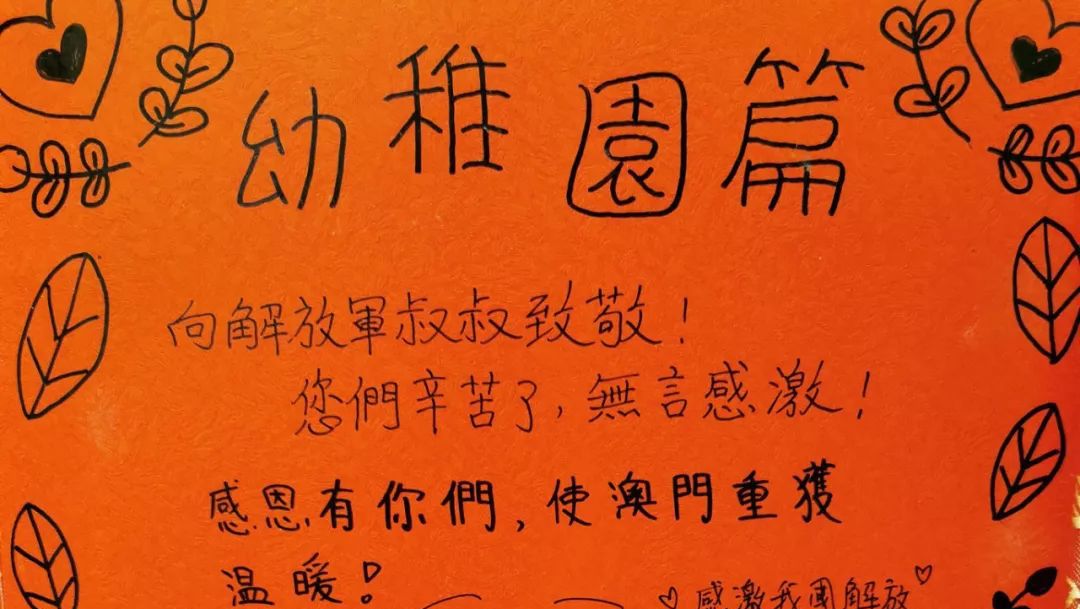 幼稚園篇
向解放軍叔叔致敬！
您們辛苦了，無言感激！
感恩有你們，使澳門重獲
溫暖！
感激我國解放